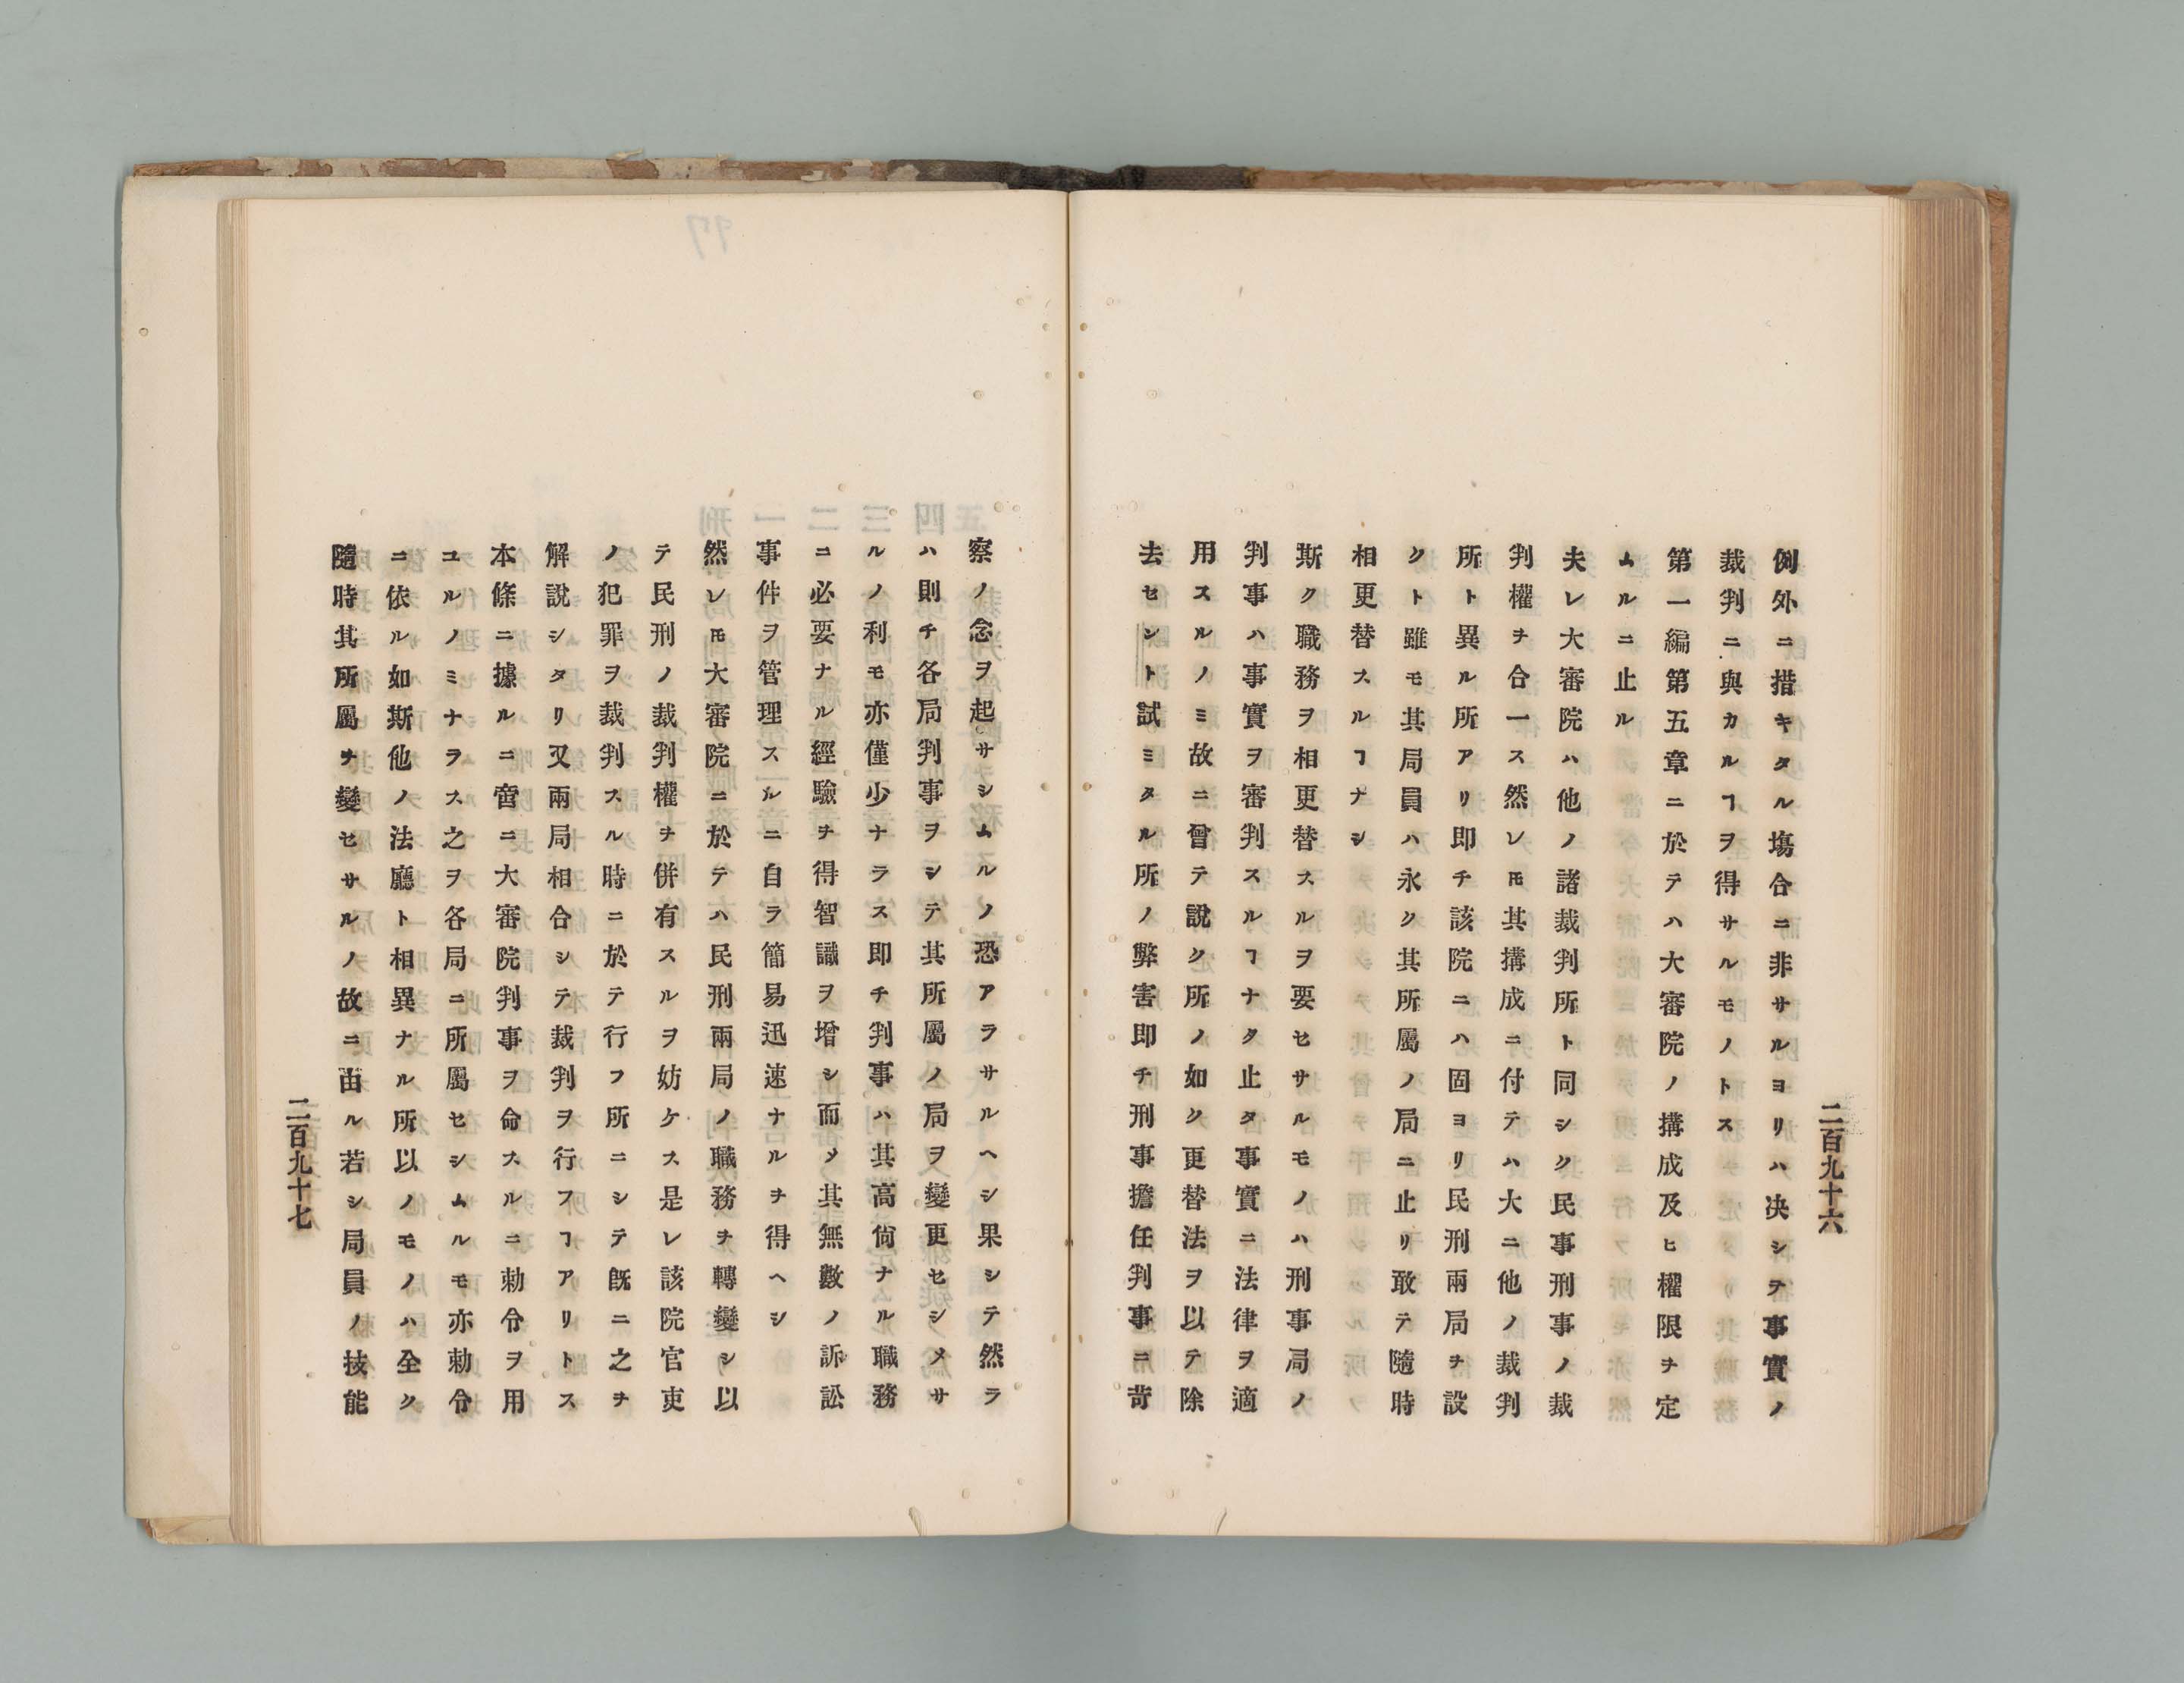 二百九十六
例外ニ措キタル塲合ニ非サルヨリハ决シテ事實ノ
裁判ニ與カルヿヲ得サルモノトス
第一編第五章ニ於テハ大審院ノ搆成及ヒ權限ヲ定
ムルニ止ル
夫レ大審院ハ他ノ諸裁判所ト同シク民事刑事ノ裁
判權ヲ合一ス然レ𪜈其搆成ニ付テハ大ニ他ノ裁判
所ト異ル所アリ即チ該院ニハ固ヨリ民刑兩局ヲ設
クト雖モ其局員ハ永ク其所屬ノ局ニ止リ敢テ隨時
相更替スルヿナシ
斯ク職務ヲ相更替スルヲ要セサルモノハ刑事局ノ
判事ハ事實ヲ審判スルヿナク止タ事實ニ法律ヲ適
用スルノミ故ニ曾テ說ク所ノ如ク更替法ヲ以テ除
去セント試ミタル所ノ弊害即チ刑事擔任判事ニ苛
察ノ念ヲ起サシムルノ恐アラサルヘシ果シテ然ラ
ハ則チ各局判事ヲシテ其所屬ノ局ヲ變更セシメサ
ルノ利モ亦僅少ナラス即チ判事ハ其高尙ナル職務
ニ必要ナル經驗ヲ得智識ヲ增シ而メ其無數ノ訴訟
事件ヲ管理スルニ自ラ簡易迅速ナルヲ得ヘシ
然レ𪜈大審院ニ於テハ民刑兩局ノ職務ヲ轉變シ以
テ民刑ノ裁判權ヲ併有スルヲ妨ケス是レ該院官吏
ノ犯罪ヲ裁判スル時ニ於テ行フ所ニシテ旣ニ之ヲ
解說シタリ又兩局相合シテ裁判ヲ行フヿアリトス
本條ニ據ルニ啻ニ大審院判事ヲ命スルニ勅令ヲ用
ユルノミナラス之ヲ各局ニ所屬セシムルモ亦勅令
ニ依ル如斯他ノ法廳ト相異ナル所以ノモノハ全ク
隨時其所屬ヲ變セサルノ故ニ由ル若シ局員ノ技能
二百九十七